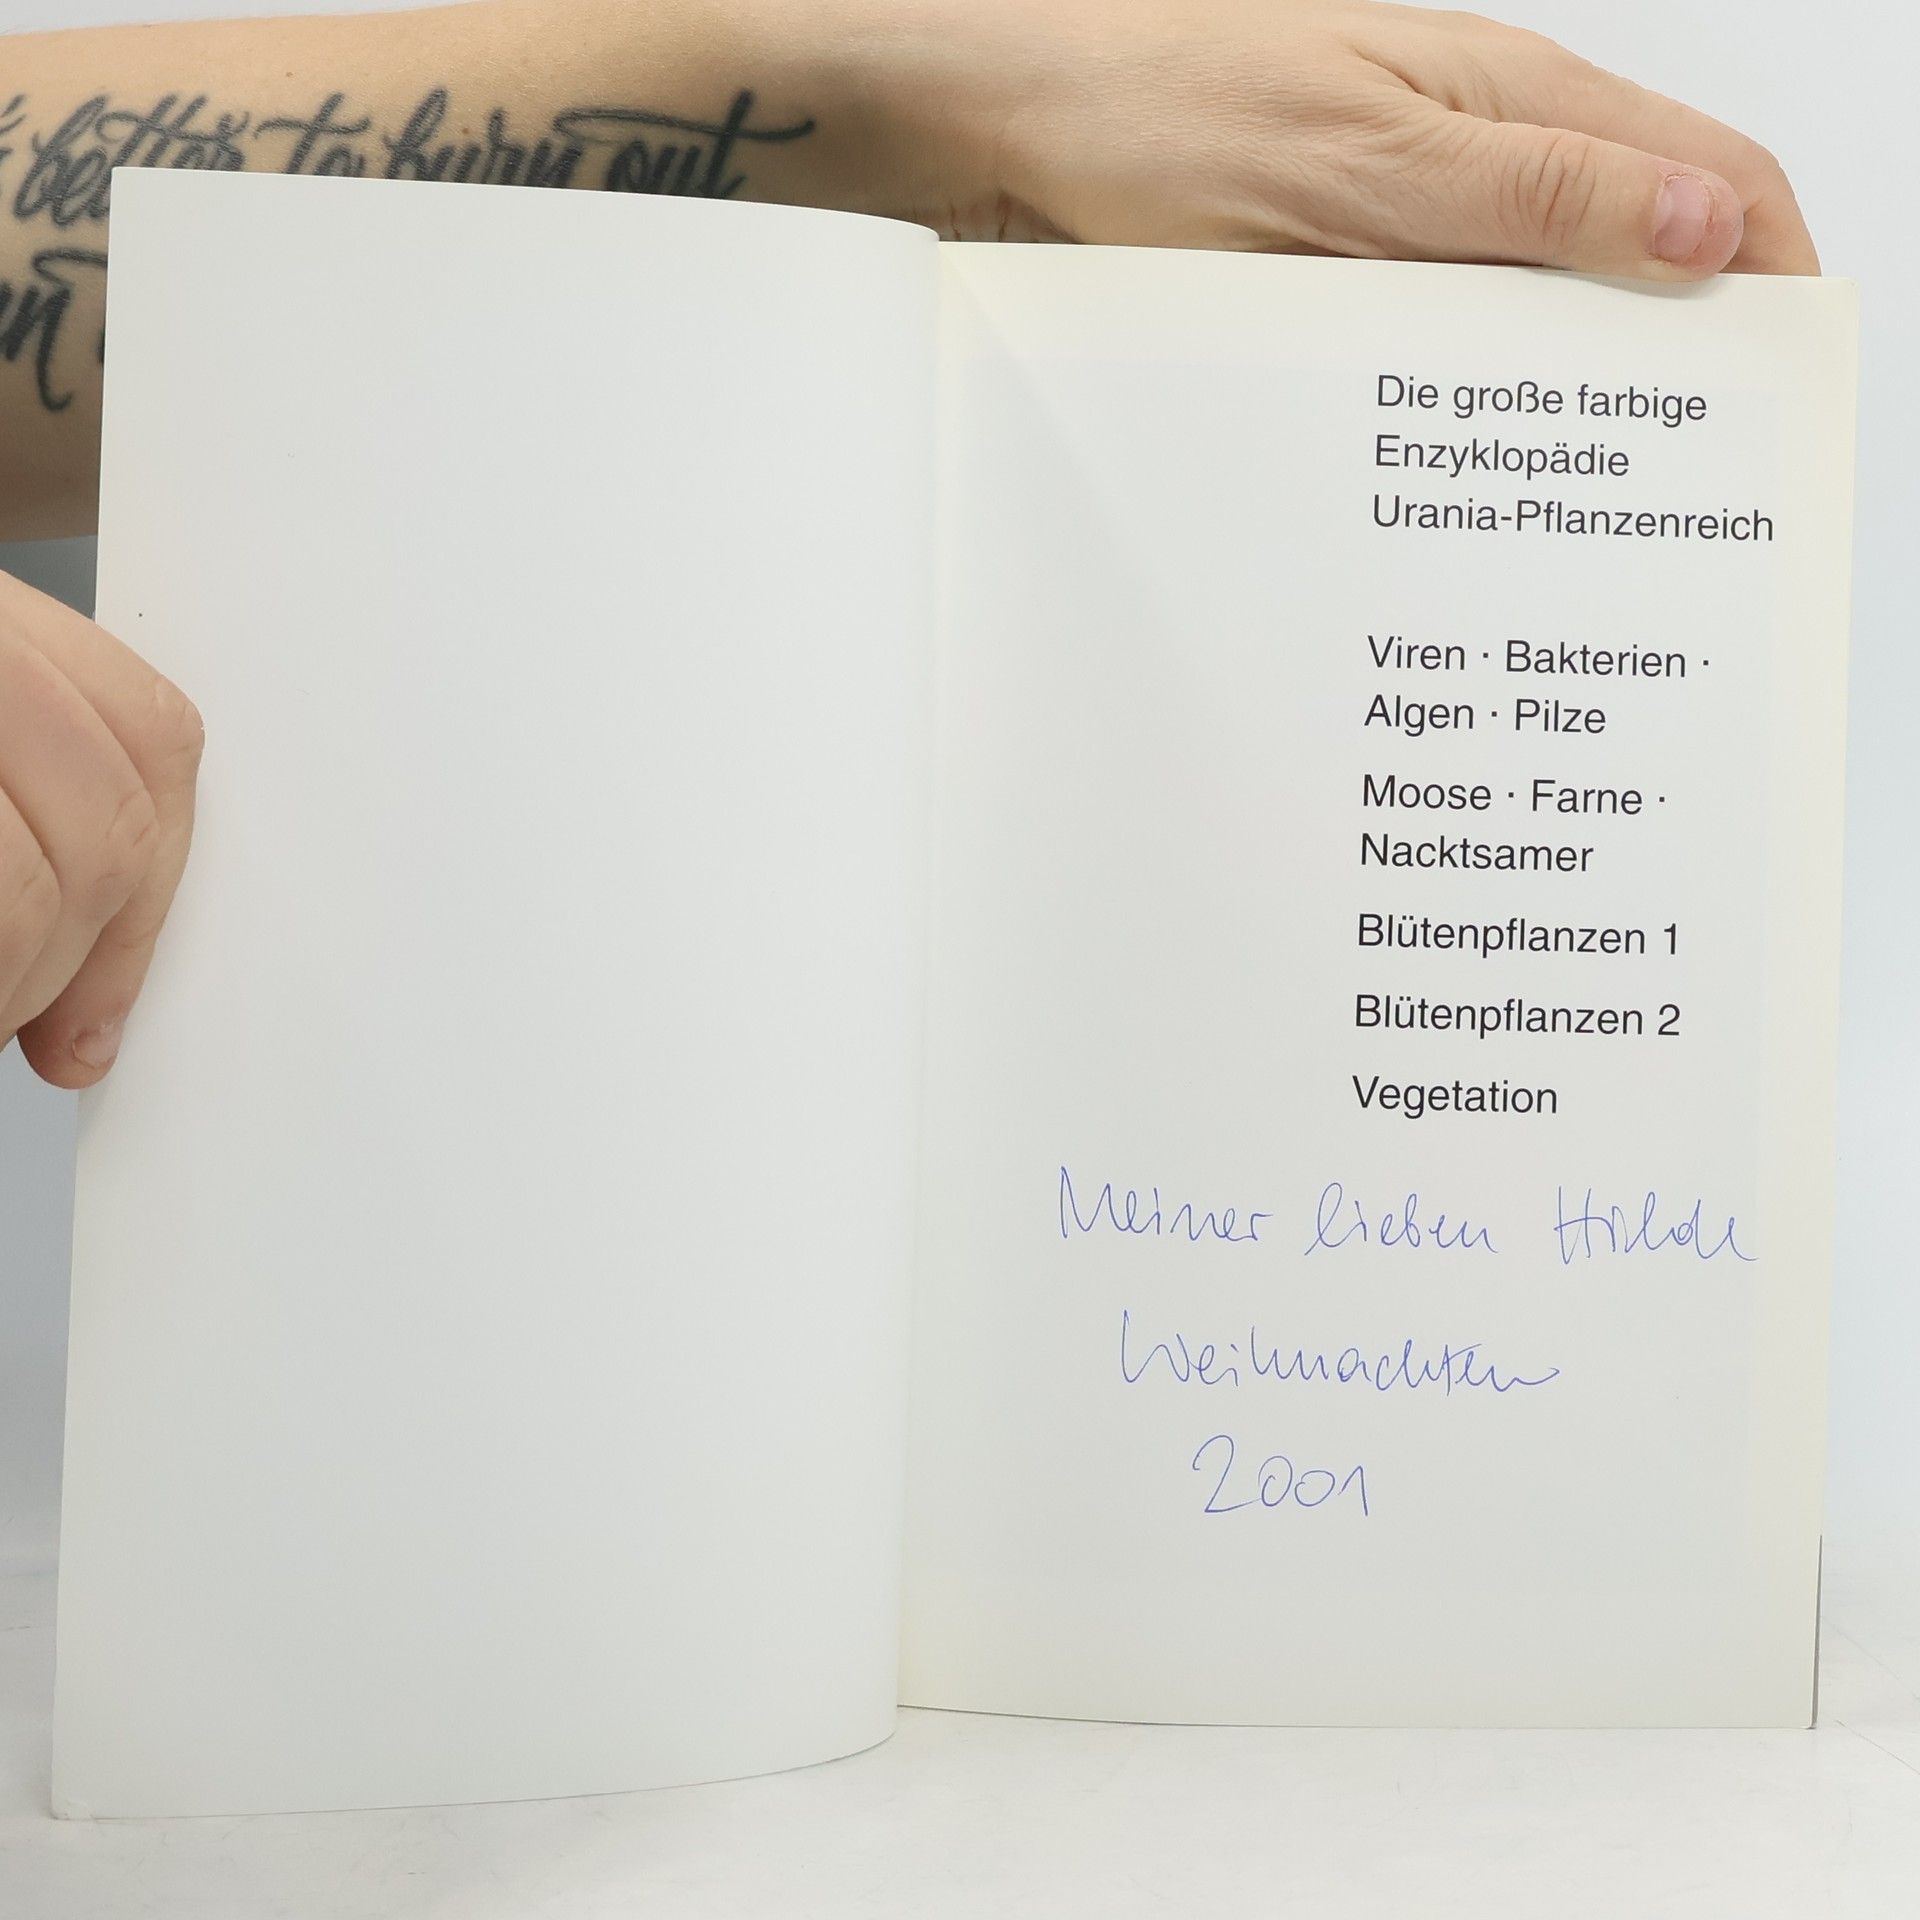 better to burn out
Die große farbige
Enzyklopädie
Urania-Pflanzenreich
Viren · Bakterien ·
Algen · Pilze
Moose · Farne ·
Nacktsamer
Blütenpflanzen 1
Blütenpflanzen 2
Vegetation
Meiner lieben Hilde
Weihnachten
2001